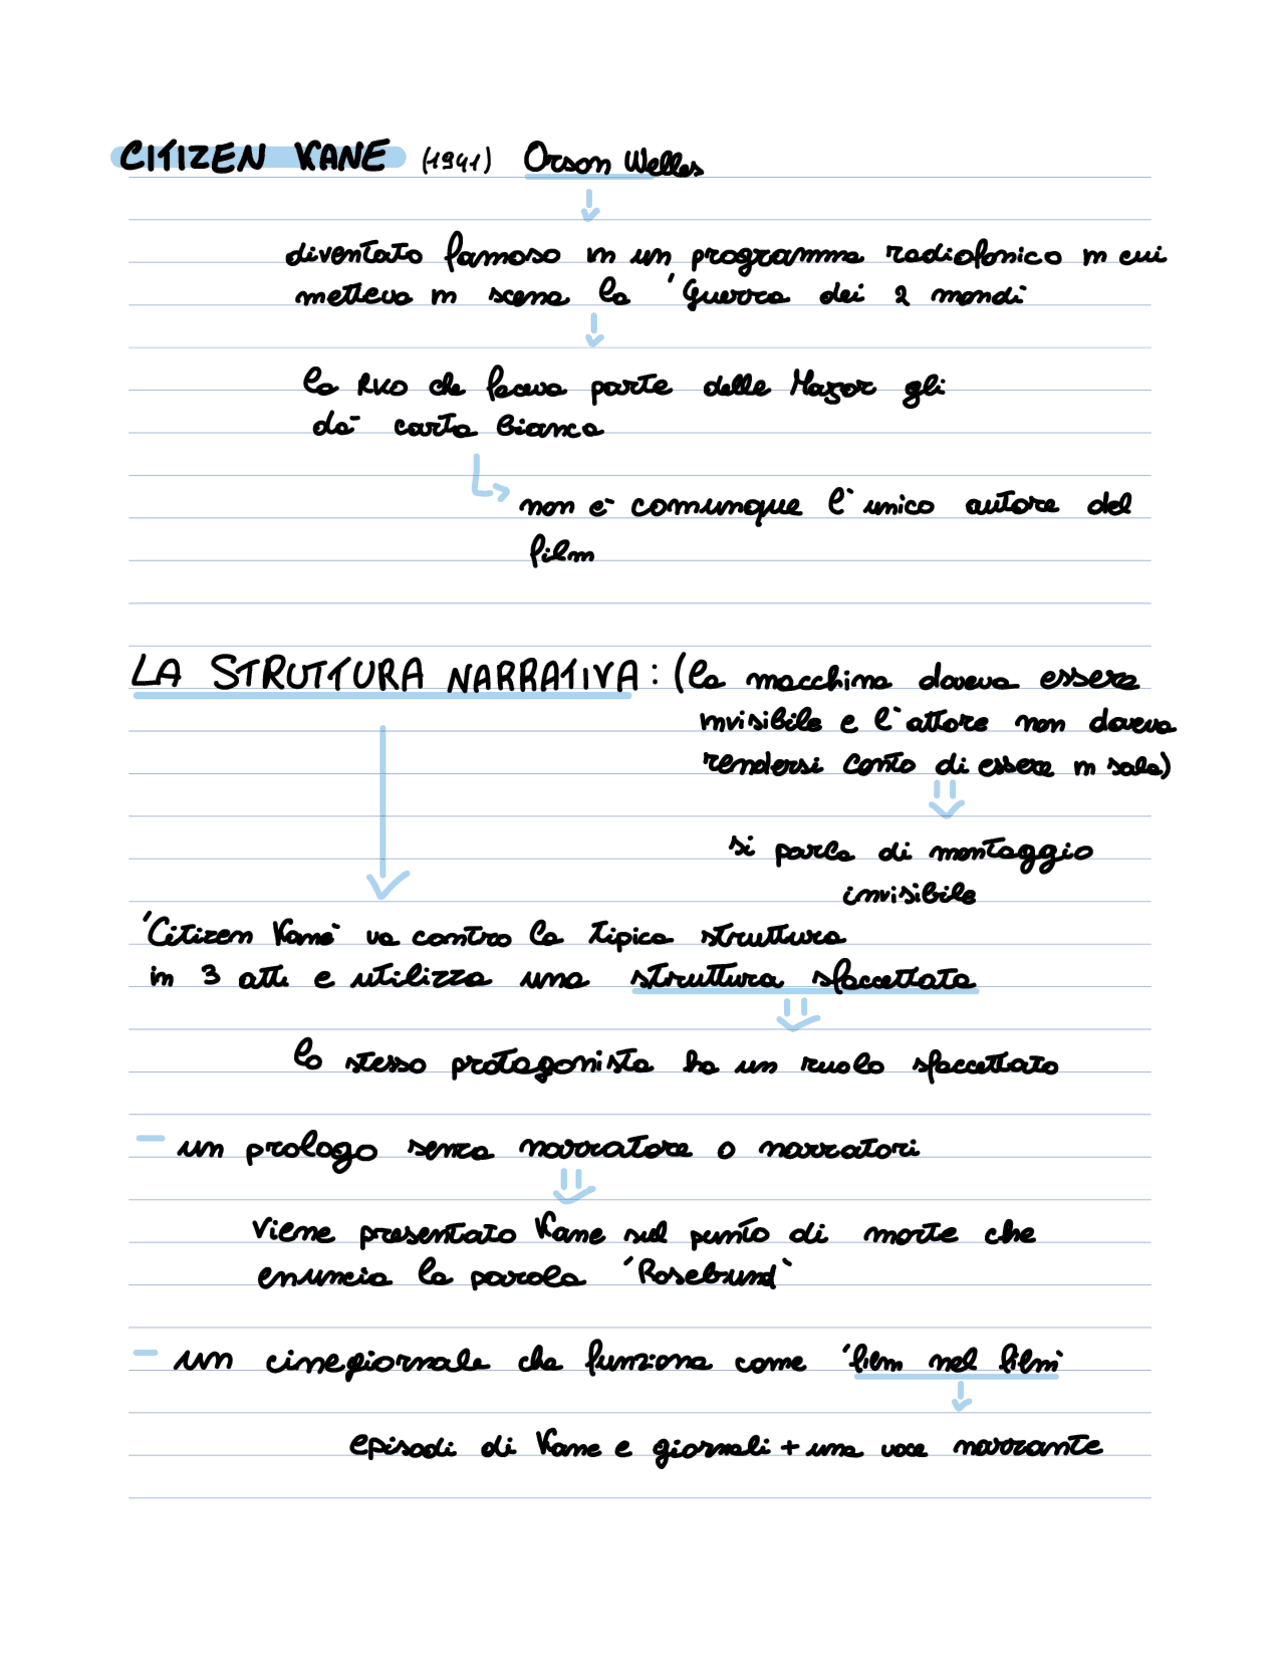 CITIZEN KANE (1941) Orson Welles
diventato famoso in un programma radiofonico in cui
metteva in scena la 'Guerra dei 2 mondi
la RKO che faceva parte delle Major gli
dà carta bianca
non è comunque l'unico autore del
film
LA STRUTTURA NARRATIVA: (la macchina doveva essere
invisibile e l'attore non doveva
rendersi conto di essere in sala)
si parla di montaggio
invisibile
'Citizen Kane' va contro la tipica struttura
in 3 atti e utilizza una struttura sfaccettata
lo stesso protagonista ha un ruolo sfaccettato
- un prologo senza narratore o narratori
viene presentato Kane sul punto di morte che
enuncia la parola 'Rosebund'
- un cinegiornale che funziona come 'film nel film'
episodi di Kane e giornali + una voce narrante